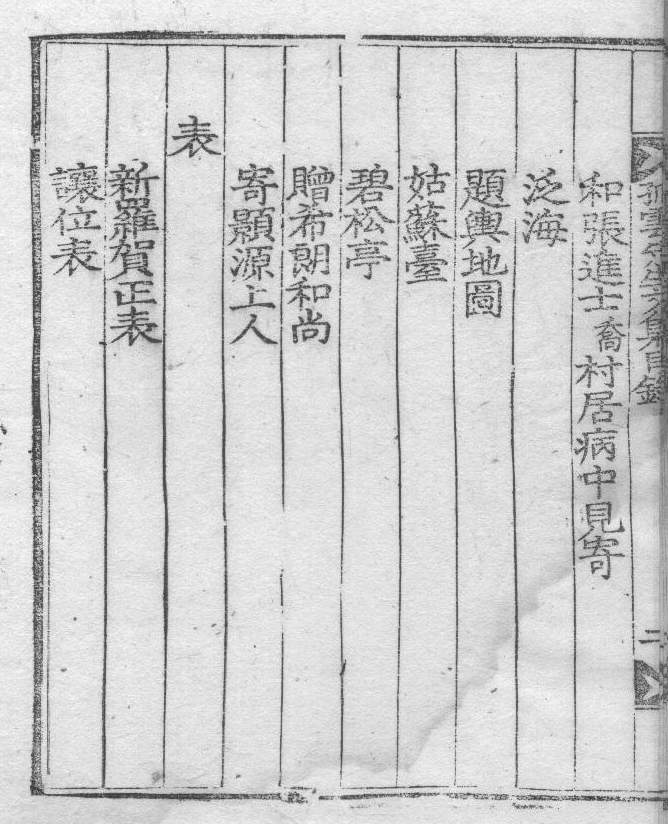 孤雲先生文集目錄
二
和張進士喬村居病中見寄
泛海
題輿地圖
姑蘇臺
碧松亭
贈希朗和尚
寄顥源上人
表
新羅賀正表
讓位表